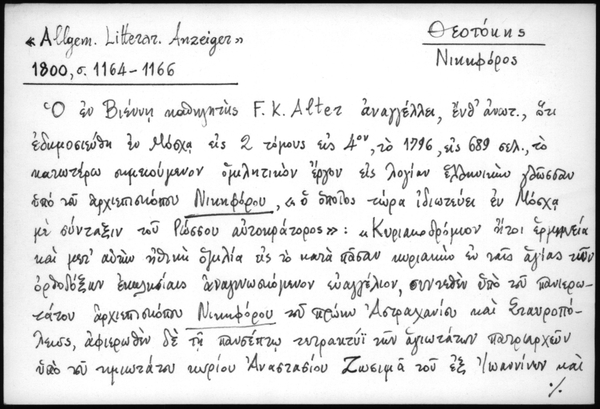 «Allgem. Litterar. Anzeiger»
1800, σ. 1164-1166
Θεοτόκης
Νικηφόρος
Ὁ ἐν Βιέννῃ καθηγητὴς F. K. Alter ἀναγγέλλει, ἔνθ' ἀνωτ., ὅτι
ἐδημοσιεύθη ἐν Μόσχᾳ εἰς 2 τόμους εἰς 4ον, τὸ 1796, εἰς 689 σελ., τὸ
κατωτέρω σημειούμενον ὁμιλητικὸν ἔργον εἰς λογίαν ἑλληνικὴν γλῶσσαν
ὑπὸ τοῦ ἀρχιεπισκόπου Νικηφόρου, «ὁ ὁποῖος τώρα ἰδιωτεύει ἐν Μόσχᾳ
μὲ σύνταξιν τοῦ Ρώσσου αὐτοκράτορος»: «Κυριακοδρόμιον ἤτοι ἑρμηνεία
καὶ μετ' αὐτὴν ἠθικὴ ὁμιλία εἰς τὸ κατὰ πᾶσαν κυριακὴν ἐν ταῖς ἁγίαις τῶν
ὀρθοδόξων ἐκκλησίαις ἀναγινωσκόμενον εὐαγγέλιον, συντεθὲν ὑπὸ τοῦ πανιερω-
τάτου ἀρχιεπισκόπου Νικηφόρου τοῦ πρώην Ἀστραχανίου καὶ Σταυροπό-
λεως, ἀφιερωθὲν δὲ τῇ πανσέπτῳ τετρακτύϊ τῶν ἁγιωτάτων πατριαρχῶν
ὑπὸ τοῦ τιμιωτάτου κυρίου Ἀναστασίου Ζωσιμᾶ τοῦ ἐξ Ἰωαννίνων καὶ
./.